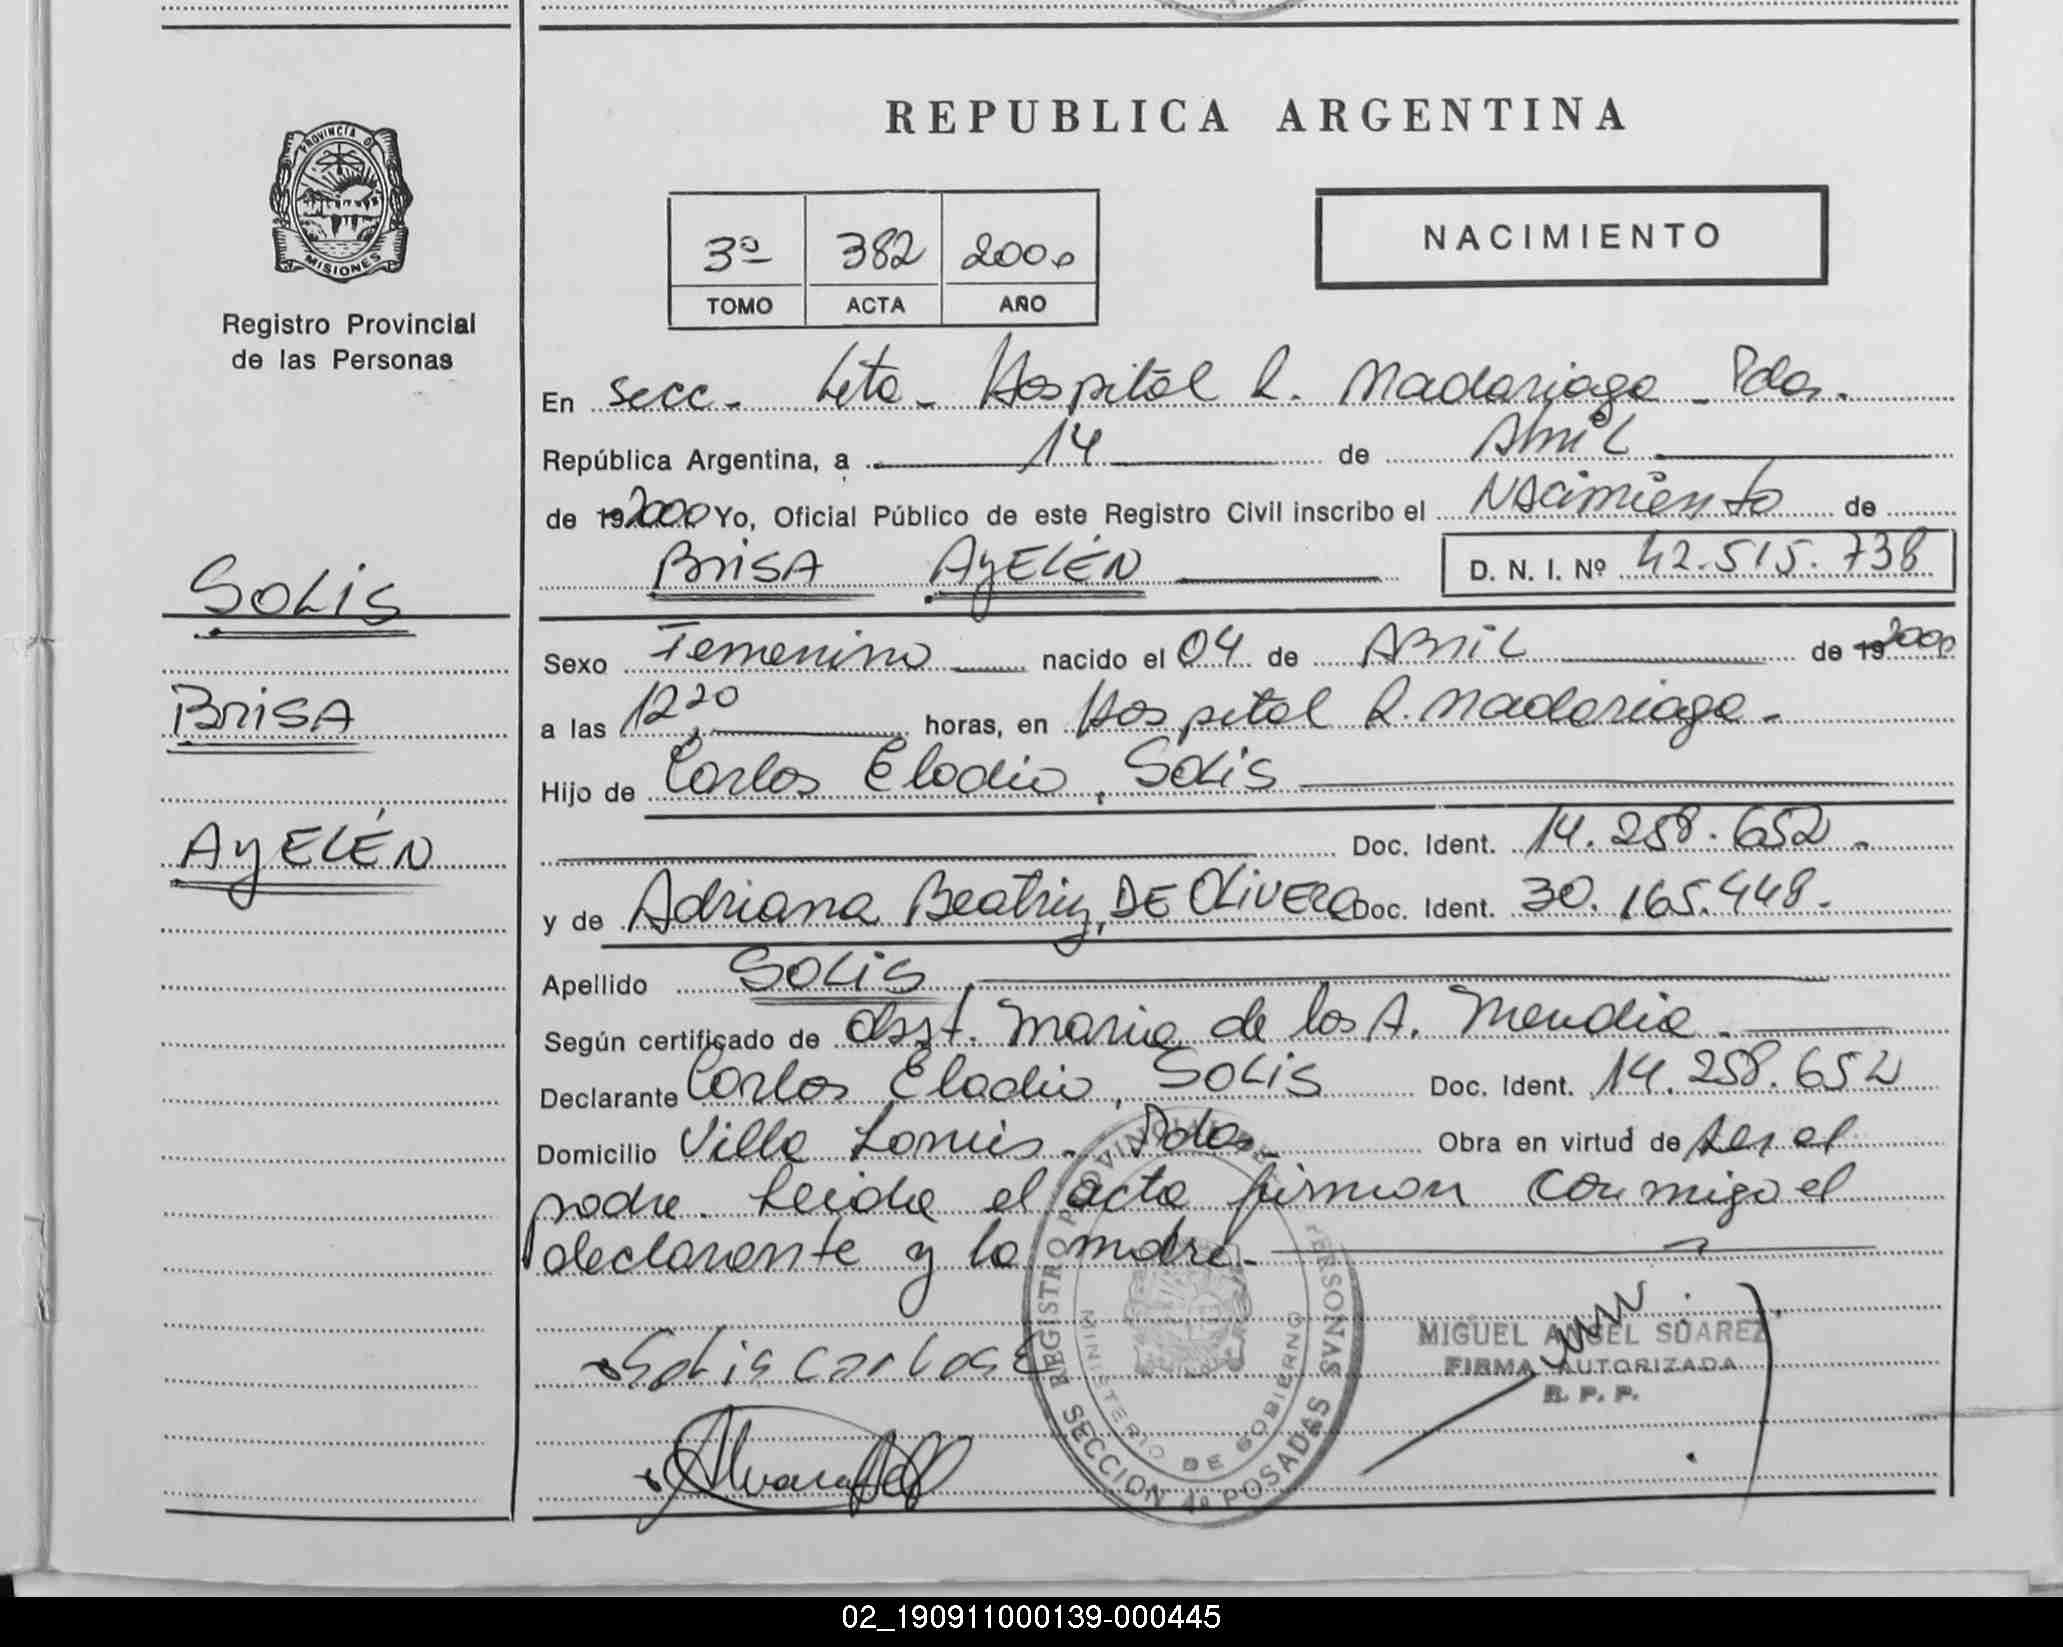 PROVINCIA D
MISIONES
Registro Provincial
de las Personas
SOLIS
BRISA
AYELÉN
REPUBLICA ARGENTINA
3º 382 2000
TOMO ACTA AÑO
NACIMIENTO
En Secc. 4ta. Hospital R. Madariaga - Pdas.
República Argentina, a 14 de Abril
de 19 2000 Yo, Oficial Público de este Registro Civil inscribo el NAcimiento de
BRISA AYELÉN D. N. I. Nº 42.515.738
Sexo Femenino nacido el 04 de ABRIL de 19 2000
a las 12 20 horas, en Hospital R. Madariaga.
Hijo de Carlos Eladio, SOLIS
Doc. Ident. 14.258.652.
y de Adriana Beatriz, DE OLIVERA Doc. Ident. 30.165.448.
Apellido SOLIS
Según certificado de Obst. Maria de los A. Mendia.
Declarante Carlos Eladio, SOLIS Doc. Ident. 14.258.652
Domicilio Villa Lanús. Pdas. Obra en virtud de ser el
padre. Leida el acta firman conmigo el
declarante y la madre.
Solis Carlos E
MIGUEL ANGEL SUAREZ
FIRMA AUTORIZADA
R. P. P.
REGISTRO PROVINCIAL DE PERSONAS
MINISTERIO DE GOBIERNO
SECCION 4º POSADAS
02_190911000139-000445